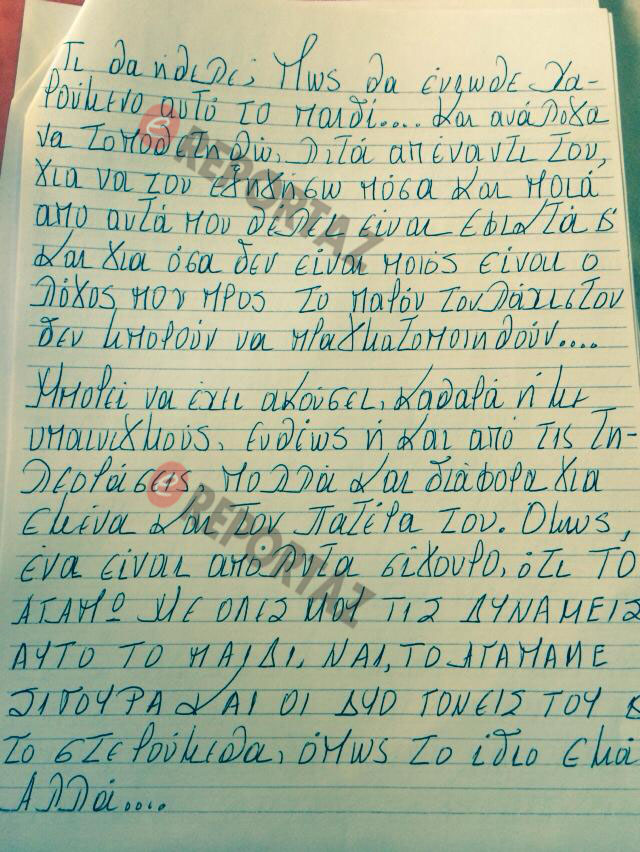 Τι θα ήθελε; Πως θα ένιωθε χα-
ρούμενο αυτό το παιδί.... Και ανάλογα
να τοποθετηθώ, λιτά απέναντι του,
για να του εξηγήσω πόσα και ποιά
απο αυτά που θέλει είναι εφικτά &
και για όσα δεν είναι ποιός είναι ο
λόγος που προς το παρόν τουλάχιστον
δεν μπορούν να πραγματοποιηθούν....
Μπορεί να έχει ακούσει, καθαρά ή με
υπαινιγμούς, ευθέως ή και από τις τη-
λεοράσεις, πολλά και διάφορα για
εμένα και τον πατέρα του. Όμως,
ένα είναι απόλυτα σίγουρο, ότι ΤΟ
ΑΓΑΠΩ ΜΕ ΟΛΕΣ ΜΟΥ ΤΙΣ ΔΥΝΑΜΕΙΣ
ΑΥΤΟ ΤΟ ΠΑΙΔΙ. ΝΑΙ, ΤΟ ΑΓΑΠΑΜΕ
ΣΙΓΟΥΡΑ ΚΑΙ ΟΙ ΔΥΟ ΓΟΝΕΙΣ ΤΟΥ &
το στερούμεθα, όπως το ίδιο εμά
Αλλά....
REPORTAZ
REPORTAZ